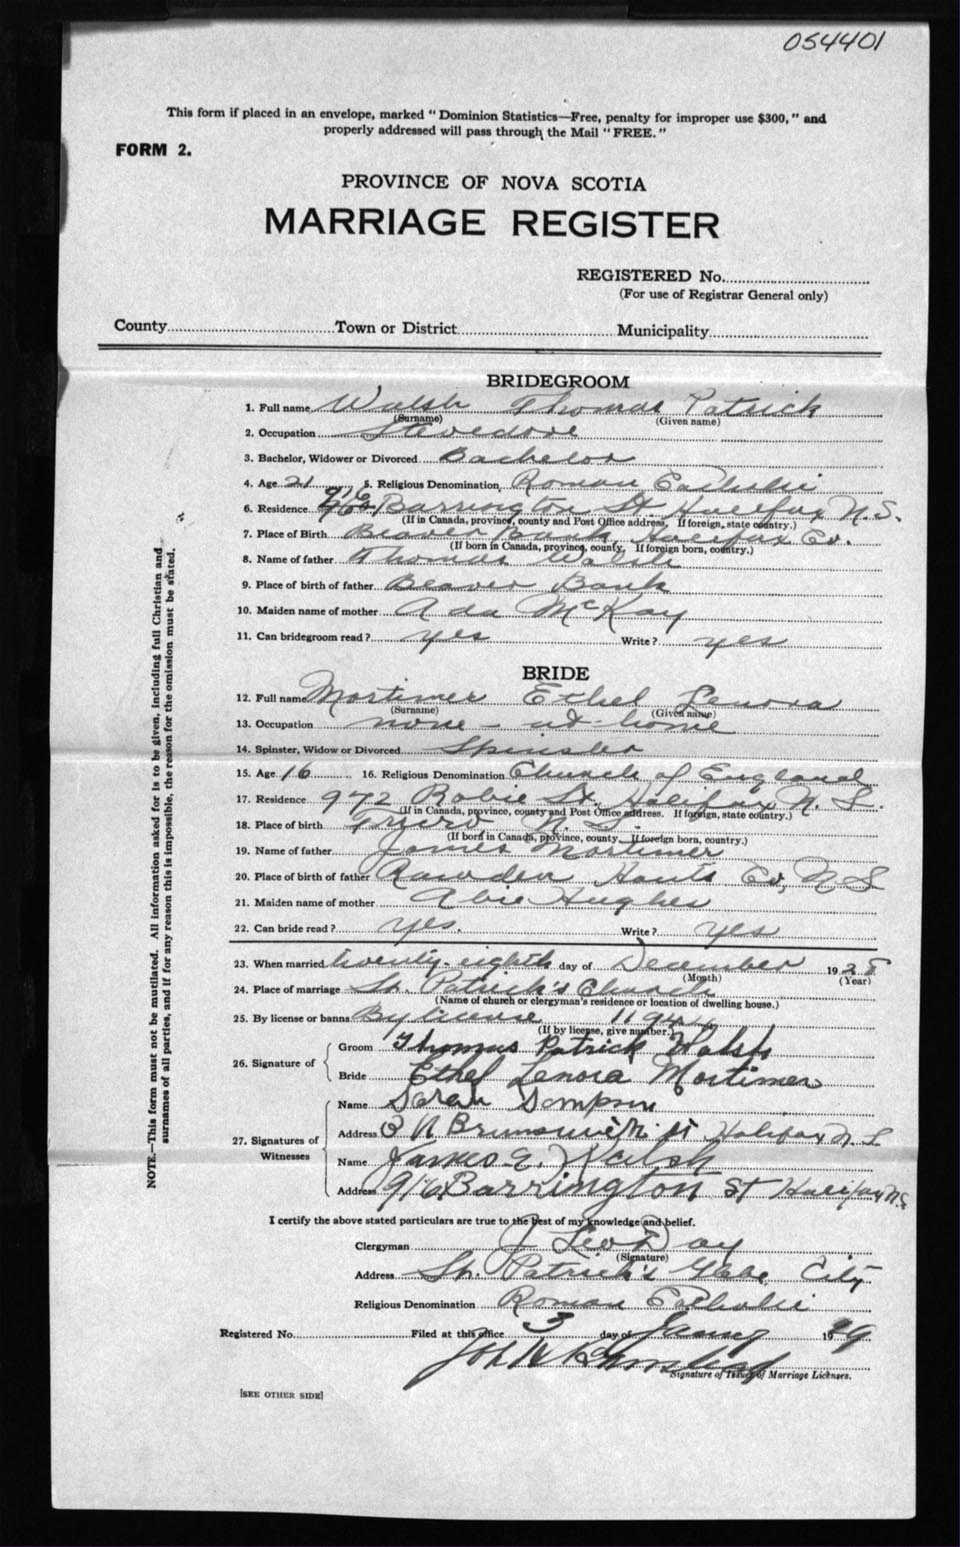 054401
This form if placed in an envelope, marked "Dominion Statistics—Free, penalty for improper use $300," and
properly addressed will pass through the Mail "FREE."
FORM 2.
PROVINCE OF NOVA SCOTIA
MARRIAGE REGISTER
REGISTERED No.
(For use of Registrar General only)
County Town or District Municipality
BRIDEGROOM
1. Full name Walsh Thomas Patrick
(Surname) (Given name)
2. Occupation Stevedore
3. Bachelor, Widower or Divorced Bachelor
4. Age 21 5. Religious Denomination Roman Catholic
6. Residence 916 Barrington St. Halifax N.S.
(If in Canada, province, county and Post Office address. If foreign, state country.)
7. Place of Birth Beaver Bank, Halifax Co.
(If born in Canada, province, county. If foreign born, country.)
8. Name of father Thomas Walsh
9. Place of birth of father Beaver Bank
10. Maiden name of mother Ada McKay
11. Can bridegroom read? yes Write? yes
BRIDE
12. Full name Mortimer Ethel Lenora
(Surname) (Given name)
13. Occupation none - at home
14. Spinster, Widow or Divorced Spinster
15. Age 16 16. Religious Denomination Church of England
17. Residence 972 Robie St., Halifax N.S.
(If in Canada, province, county and Post Office address. If foreign, state country.)
18. Place of birth Truro N.S.
(If born in Canada, province, county. If foreign born, country.)
19. Name of father James Mortimer
20. Place of birth of father Rawden Hants Co, N.S
21. Maiden name of mother Abie Hughes
22. Can bride read? yes. Write? yes
23. When married twenty-eighth day of December 1928
(Month) (Year)
24. Place of marriage St. Patrick's Church
(Name of church or clergyman's residence or location of dwelling house.)
25. By license or banns By license 11944
(If by license, give number.)
26. Signature of
Groom Thomas Patrick Walsh
Bride Ethel Lenora Mortimer
27. Signatures of Witnesses
Name Sarah Sampson
Address Brunswick st Halifax N.S.
Name James E. Walsh
Address 916 Barrington St Halifax N.S
I certify the above stated particulars are true to the best of my knowledge and belief.
Clergyman J Leo Day
(Signature)
Address St. Patrick's Glebe, City
Religious Denomination Roman Catholic
Registered No. Filed at this office 3 day of 1929
Signature of Issuer of Marriage Licenses.
[SEE OTHER SIDE]
NOTE.—This form must not be mutilated. All information asked for is to be given, including full Christian and
surnames of all parties, and if for any reason this is impossible, the reason for the omission must be stated.